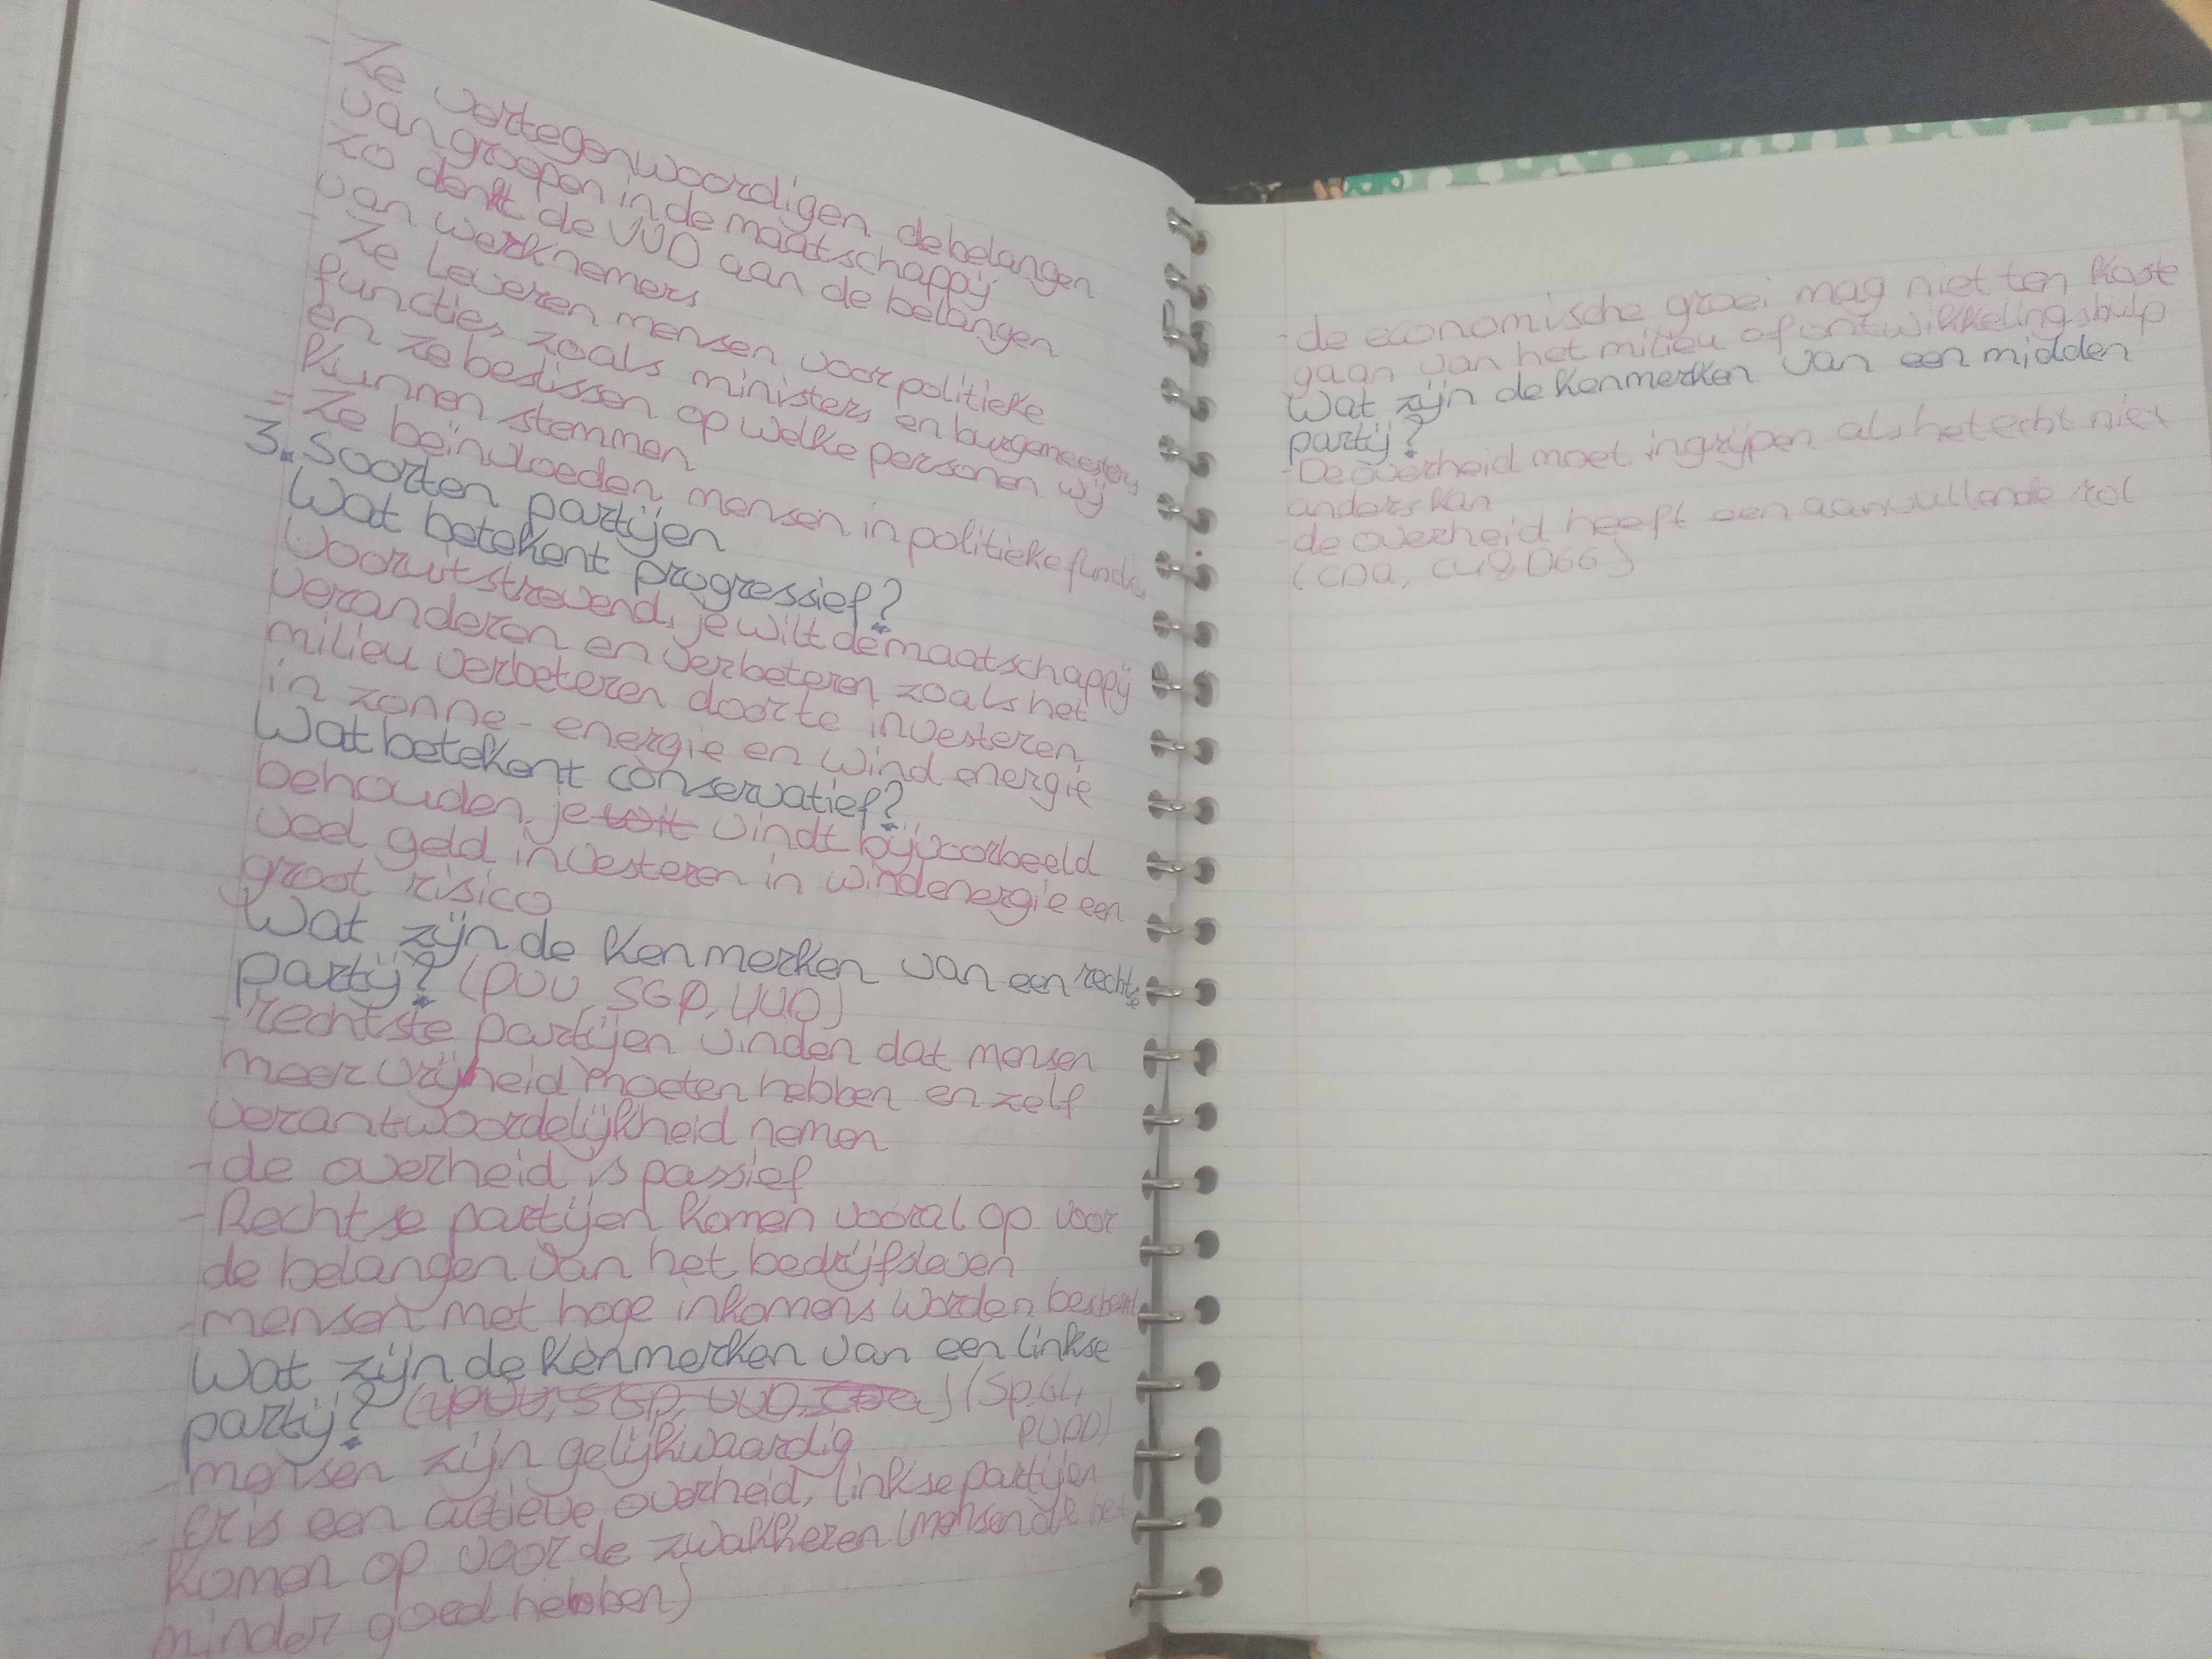 - Ze vertegenwoordigen de belangen
van groepen in de maatschappij
zo denkt de VVD aan de belangen
van werknemers
- Ze leveren mensen voor politieke
functies, zoals ministers en burgemeesters
en ze beslissen op welke personen wij
kunnen stemmen
- Ze beïnvloeden mensen in politieke
3. Soorten partijen
Wat betekent progressief?
Vooruitstrevend, je wilt de maatschappij
veranderen en verbeteren zoals het
milieu verbeteren door te investeren
in zonne-energie en wind energie
Wat betekent conservatief?
behouden, je wilt vindt bijvoorbeeld
veel geld investeren in windenergie een
groot risico
Wat zijn de kenmerken van een rechtse
partij? (PVV, SGP, VVD)
- rechtste partijen vinden dat mensen
meer vrijheid moeten hebben en zelf
verantwoordelijkheid nemen
- de overheid is passief
- Rechtse partijen komen vooral op voor
de belangen van het bedrijfsleven
- mensen met hoge inkomens worden
Wat zijn de kenmerken van een linkse
partij? (PVV, SGP, VVD, CDA) (SP, GL,
PVDD)
- mensen zijn gelijkwaardig
- Er is een actieve overheid, linkse partijen
komen op voor de zwakkeren (mensen die het
minder goed hebben)
- de economische groei mag niet ten koste
gaan van het milieu of ontwikkelingshulp
Wat zijn de kenmerken van een midden
partij?
- De overheid moet ingrijpen als het echt niet
anders kan
- de overheid heeft een aanvullende rol
(CDA, CU & D66)